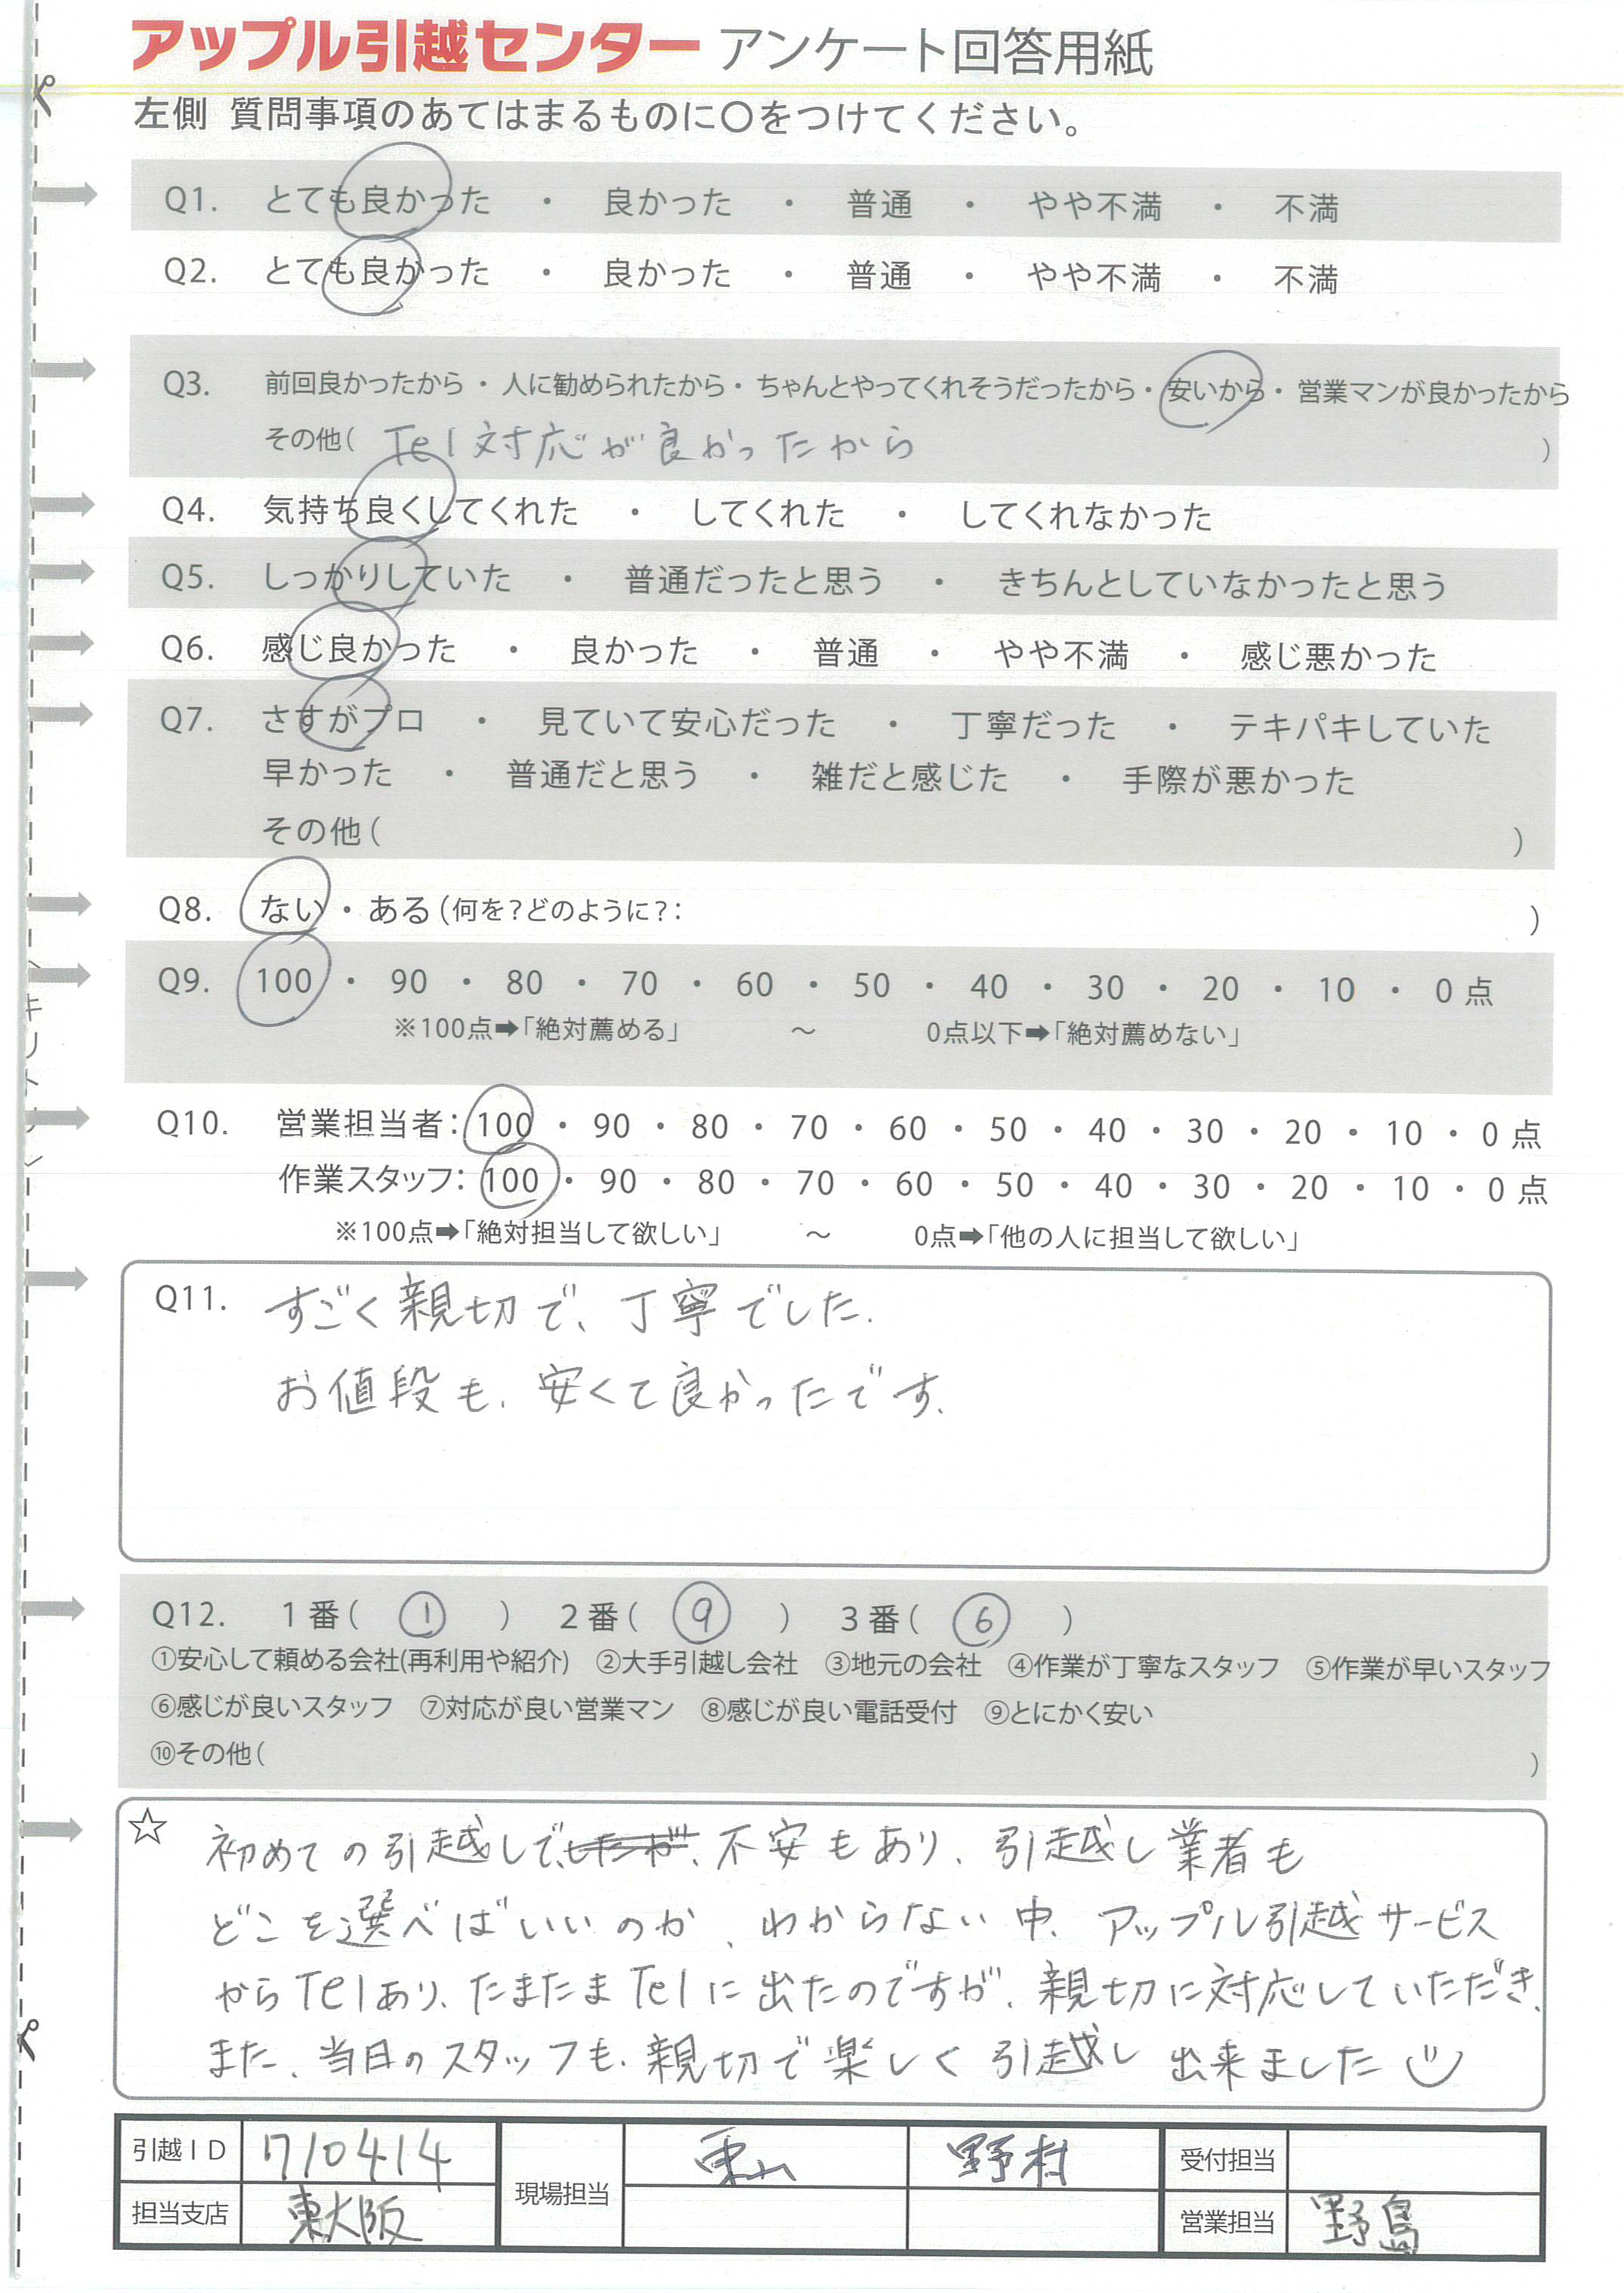 アップル引越センター アンケート回答用紙
左側 質問事項のあてはまるものに〇をつけてください。
Q1. とても良かった ・ 良かった ・ 普通 ・ やや不満 ・ 不満
Q2. とても良かった ・ 良かった ・ 普通 ・ やや不満 ・ 不満
Q3. 前回良かったから ・ 人に勧められたから ・ ちゃんとやってくれそうだったから ・ 安いから ・ 営業マンが良かったから
その他( Tel対応が良かったから )
Q4. 気持ち良くしてくれた ・ してくれた ・ してくれなかった
Q5. しっかりしていた ・ 普通だったと思う ・ きちんとしていなかったと思う
Q6. 感じ良かった ・ 良かった ・ 普通 ・ やや不満 ・ 感じ悪かった
Q7. さすがプロ ・ 見ていて安心だった ・ 丁寧だった ・ テキパキしていた
早かった ・ 普通だと思う ・ 雑だと感じた ・ 手際が悪かった
その他( )
Q8. ない ・ ある(何を?どのように?: )
Q9. 100 ・ 90 ・ 80 ・ 70 ・ 60 ・ 50 ・ 40 ・ 30 ・ 20 ・ 10 ・ 0 点
※100点➡「絶対薦める」 〜 0点以下➡「絶対薦めない」
キリトリ
Q10. 営業担当者: 100 ・ 90 ・ 80 ・ 70 ・ 60 ・ 50 ・ 40 ・ 30 ・ 20 ・ 10 ・ 0 点
作業スタッフ: 100 ・ 90 ・ 80 ・ 70 ・ 60 ・ 50 ・ 40 ・ 30 ・ 20 ・ 10 ・ 0 点
※100点➡「絶対担当して欲しい」 〜 0点➡「他の人に担当して欲しい」
Q11. すごく親切で、丁寧でした.
お値段も、安くて良かったです.
Q12. 1番( ① ) 2番( ⑨ ) 3番( ⑥ )
①安心して頼める会社(再利用や紹介) ②大手引越し会社 ③地元の会社 ④作業が丁寧なスタッフ ⑤作業が早いスタッフ
⑥感じが良いスタッフ ⑦対応が良い営業マン ⑧感じが良い電話受付 ⑨とにかく安い
⑩その他( )
☆ 初めての引越しで、したが、不安もあり、引越し業者も
どこを選べばいいのか、わからない中、アップル引越サービス
からTelあり、たまたまTelに出たのですが、親切に対応していただき、
また、当日のスタッフも、親切で楽しく引越し出来ました
引越ID 710414 現場担当 東山 野村 受付担当
担当支店 東大阪 営業担当 野島